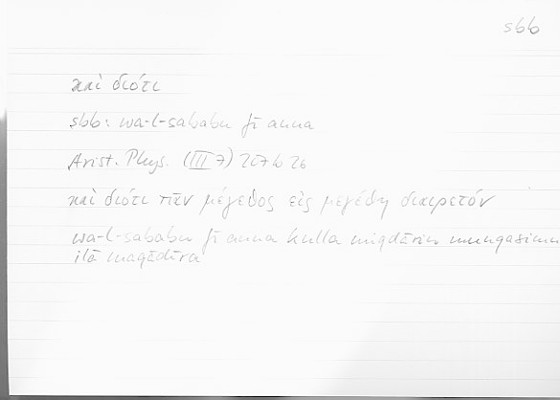 sbb
καὶ διότι
sbb: wa-l-sababu fī anna
Arist. Phys. (III 7) 207 b 26
καὶ διότι πᾶν μέγεθος εἰς μεγέθη διαιρετόν
wa-l-sababu fī anna kulla miqdārin munqasimun
ilā maqādīra